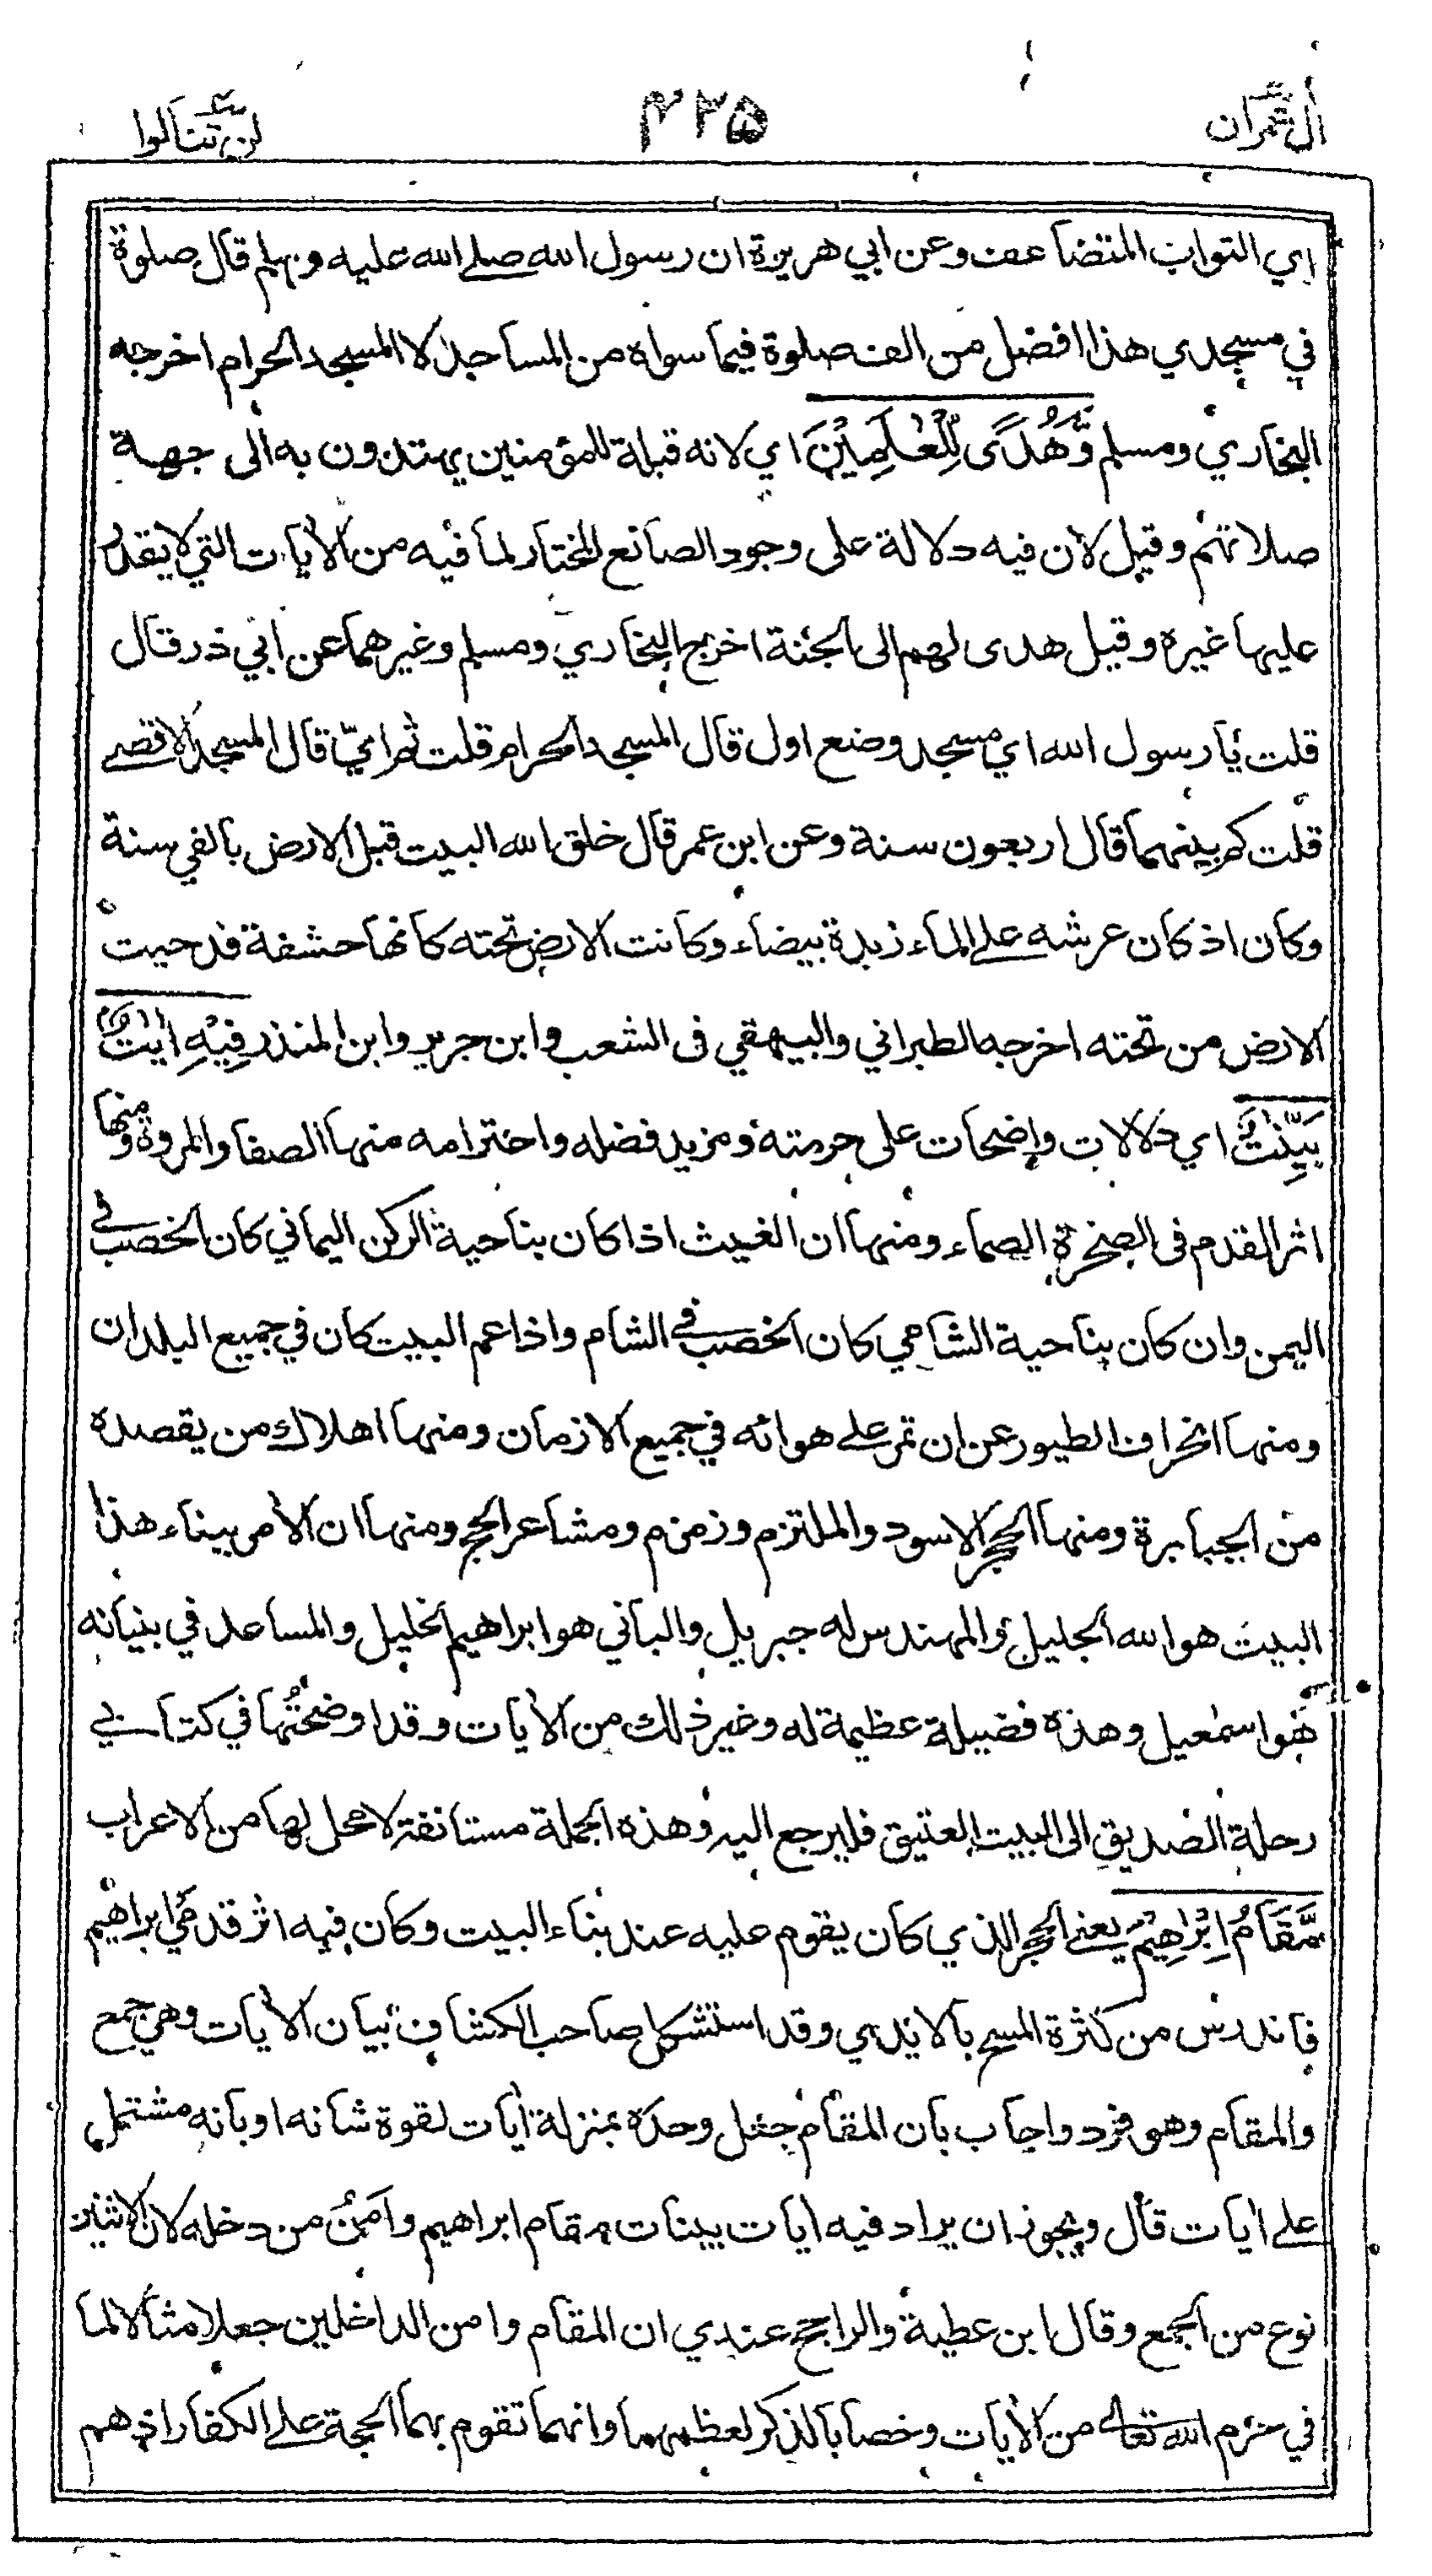 اٰل عمران
۴۲۵
لن تنالوا
اي الثواب المتضاعف وعن ابي هريرة ان رسول الله صلى الله عليه وسلم قال صلوة
في مسجدي هذا افضل من الف صلوة فيما سواه من المساجد الا المسجد الحرام اخرجه
البخاري ومسلم وَّهُدًى لِّلْعٰلَمِيْنَ اي لانه قبلة للمؤمنين يهتدون به الى جهة
صلاتهم وقيل لان فيه دلالة على وجود الصانع المختار لما فيه من الاٰيات التي لا يقدر
عليها غيره وقيل هدى لهم الى الجنة اخرج البخاري ومسلم وغيرهما عن ابي ذر قال
قلت يا رسول الله اي مسجد وضع اول قال المسجد الحرام قلت ثم ايّ قال المسجد الاقصى
قلت كم بينهما قال اربعون سنة وعن ابن عمر قال خلق الله البيت قبل الارض بالفي سنة
وكان اذ كان عرشه على الماء زبدة بيضاء وكانت الارض تحته كانها حشفة فدحيت
الارض من تحته اخرجه الطبراني والبيهقي فى الشعب وابن جرير وابن المنذر فِيْهِ اٰيٰتٌۢ
بَيِّنٰتٌ اي دلالات واضحات على حرمته ومزيد فضله واحترامه منها الصفا والمروة ومنها
اثر القدم فى الصخرة الصماء ومنها ان الغيث اذا كان بناحية الركن اليماني كان الخصب في
اليمن وان كان بناحية الشامي كان الخصب في الشام واذا عم البيت كان في جميع البلدان
ومنها انحراف الطيور عن ان تمر على هوائه في جميع الازمان ومنها اهلاك من يقصده
من الجبابرة ومنها الحجر الاسود والملتزم وزمزم ومشاعر الحج ومنها ان الأمر ببناء هذا
البيت هو الله الجليل والمهندس له جبريل والباني هو ابراهيم الخليل والمساعد في بنيانه
هو اسمٰعيل وهذه فضيلة عظيمة له وغير ذلك من الاٰيات وقد اوضحتُها في كتابي
رحلة الصديق الى البيت العتيق فليرجع اليه وهذه الجملة مستانفة لا محل لها من الاعراب
مَّقَامُ اِبْرٰهِيْمَ يعنى الحجر الذي كان يقوم عليه عند بناء البيت وكان فيه اثر قدمي ابراهيم
فاندرس من كثرة المسح بالايدي وقد استشكل صاحب الكشاف بيان الاٰيات وهي جمع
والمقام وهو فرد واجاب بان المقام جعل وحده بمنزلة اٰيات لقوة شانه او بانه مشتمل
على اٰيات قال ويجوز ان يراد فيه اٰيات بينات مقام ابراهيم وأمنُ من دخله لان الاثنين
نوع من الجمع وقال ابن عطية والراجح عندي ان المقام وامن الداخلين جعلا مثالا لما
في حرم الله تعالى من الاٰيات وخصا بالذكر لعظمهما وانهما تقوم بهما الحجة على الكفار اذ هم